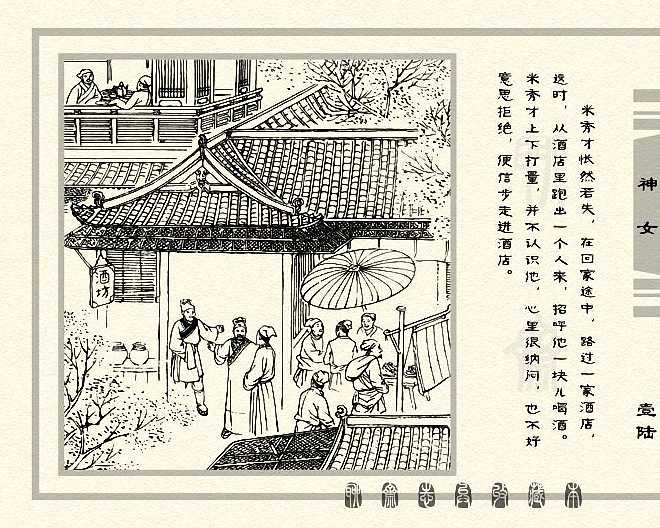 米秀才怅然若失，在回家途中，路过一家酒店，
这时，从酒店里跑出一个人来，招呼他一块儿喝酒。
米秀才上下打量，并不认识他，心里很纳闷，也不好
意思拒绝，便信步走进酒店。
神女
壹陆
酒坊